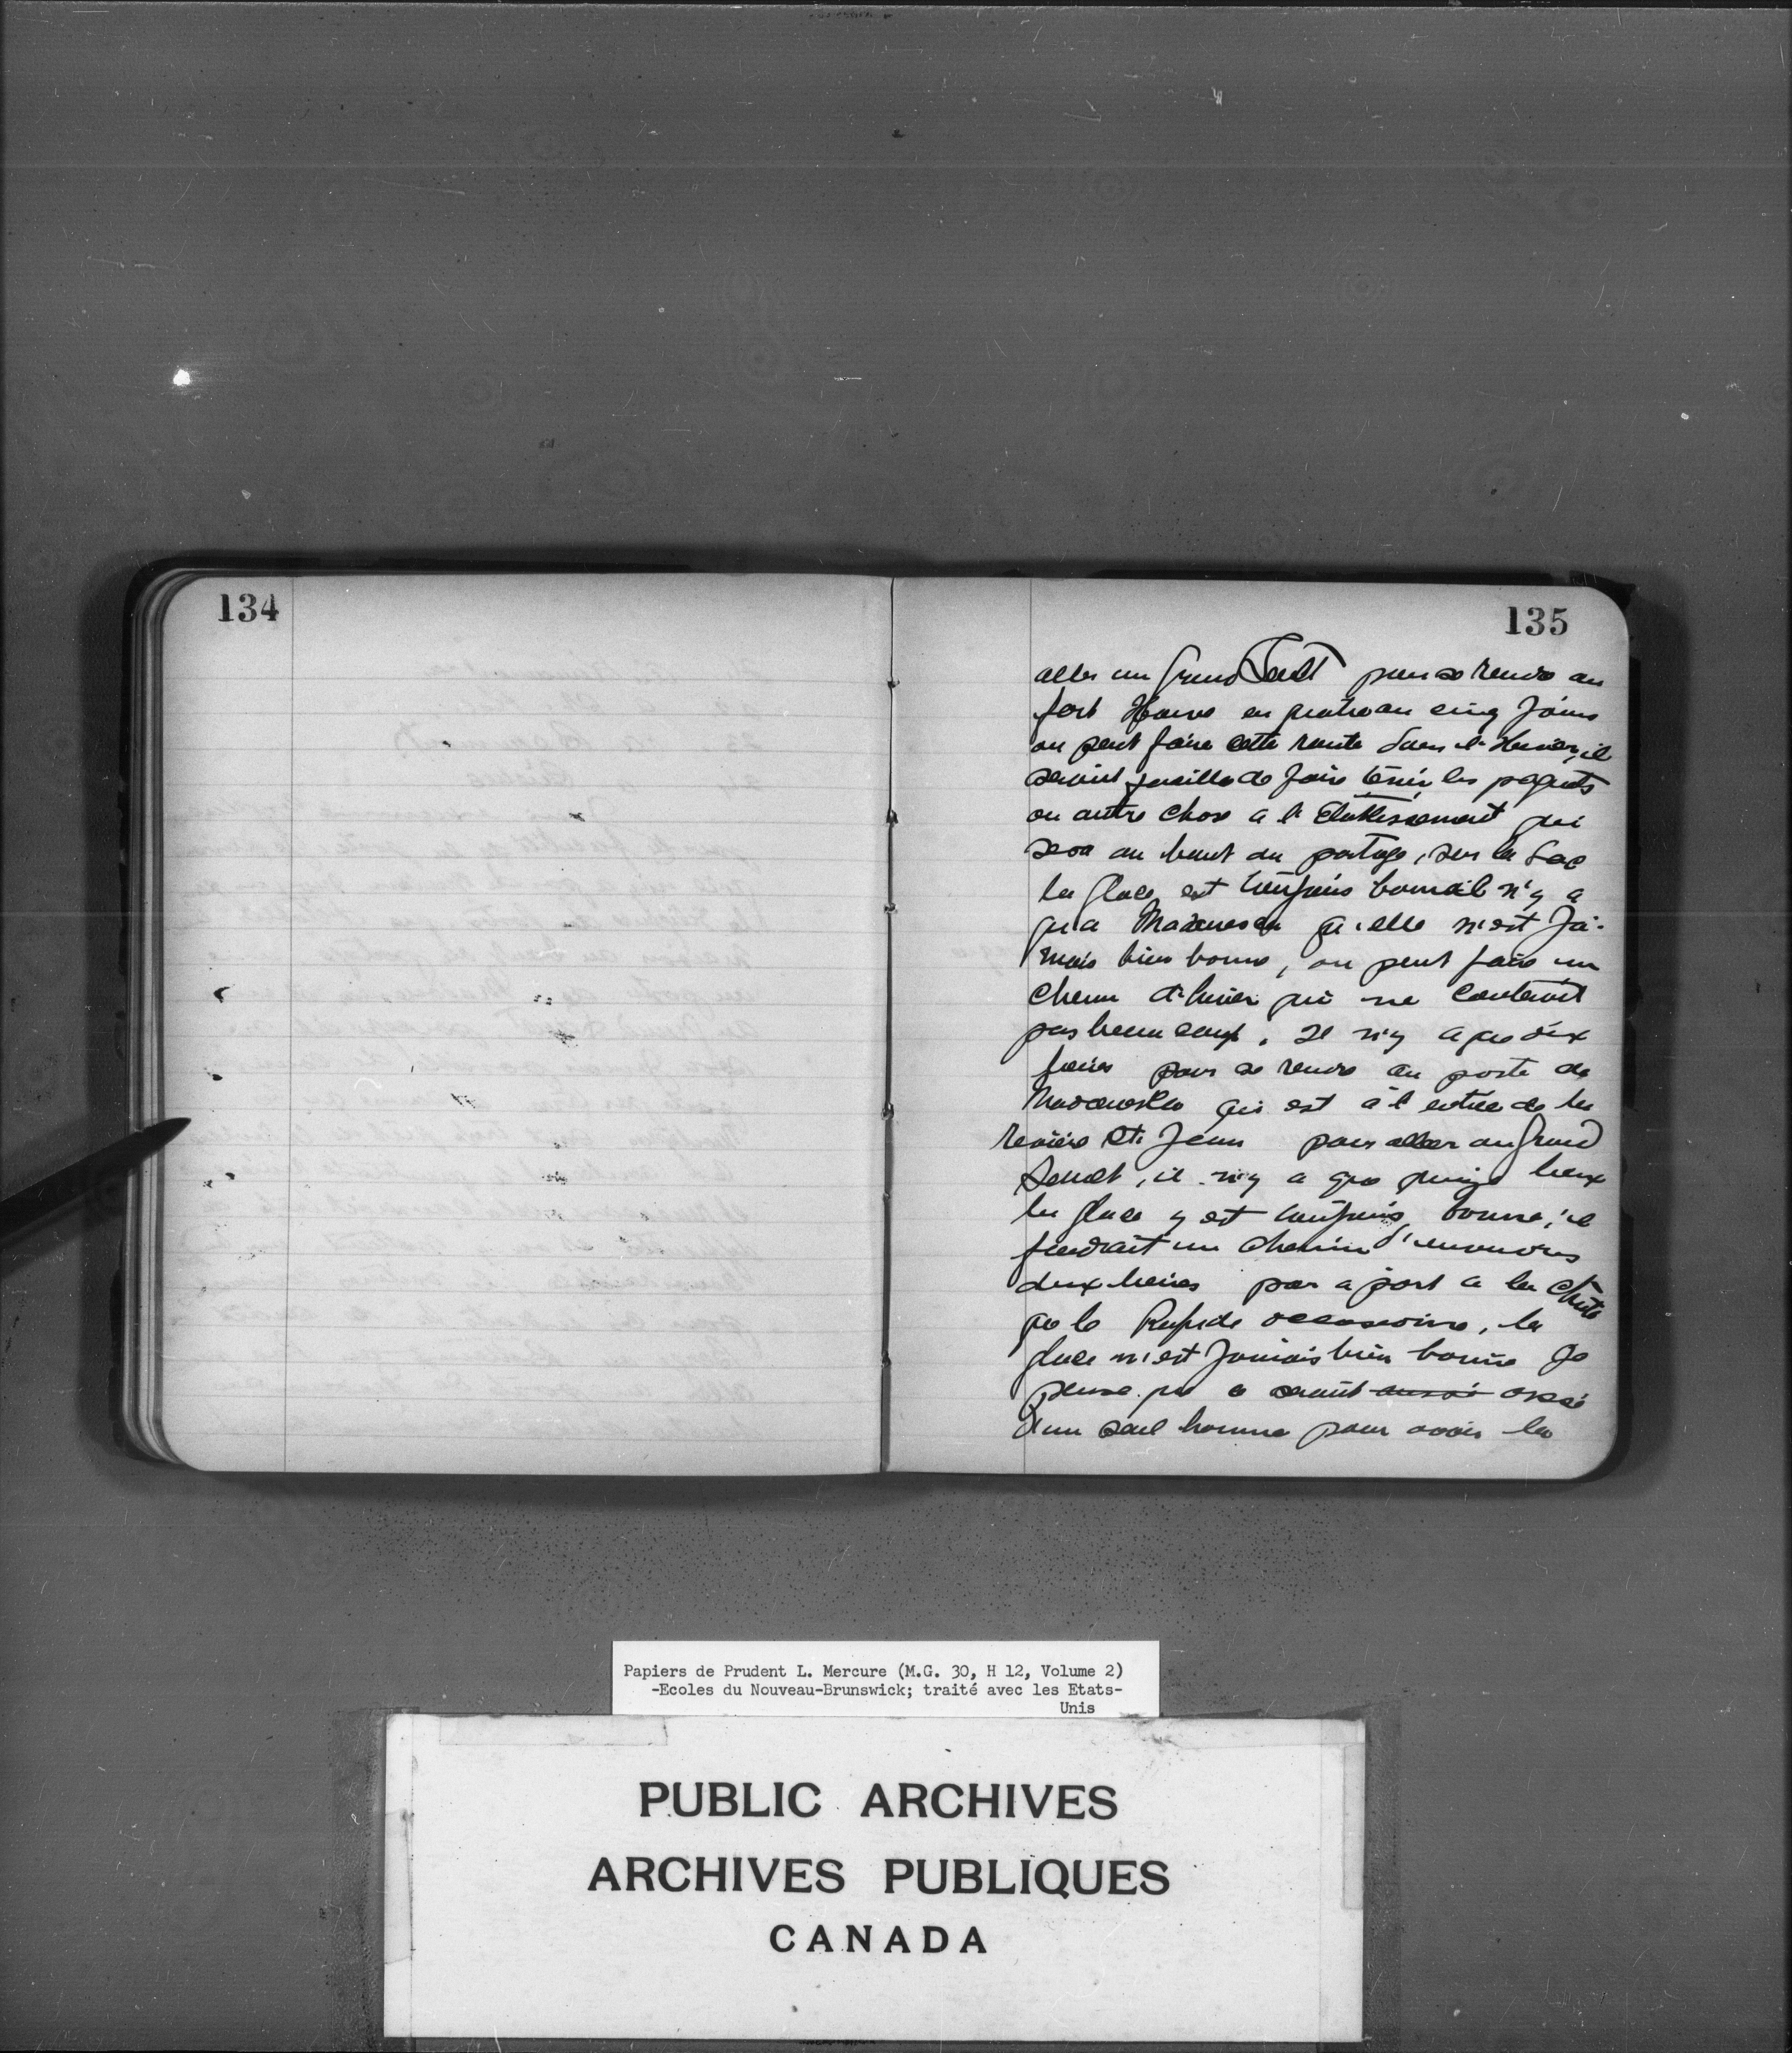 134
135
aller au Grand Sault pour se rendre au
fort Howe en quatre ou cinq Jours
on peut faire cette route dans l'hiver, il
serait facille de faire tenir les paquets
ou autre chose a l'Etablissement qui
sera au bout du portage, sur le Lac
la glace est toujours bonne il n'y a
qu'a Madaweska qu'elle n'est Ja-
mais bien bonne, on peut faire un
chemin d'hiver qui ne couterait
pas beaucoup. Il n'y a que dix
lieues pour se rendre au poste de
Madaweska qui est à l'entrée de la
rivière St. Jean pour aller au Grand
Sault, il n'y a que quinze lieux
la glace y est toujours bonne, il
faudrait un chemin d'environs
deux lieues par aport a la chute
que le Rapide occasionne, la
glace n'est Jamais bien bonne Je
pense que ce serait aussi assé
d'un seul homme pour avoir la
Papiers de Prudent L. Mercure (M.G. 30, H 12, Volume 2)
-Ecoles du Nouveau-Brunswick; traité avec les Etats-
Unis
PUBLIC ARCHIVES
ARCHIVES PUBLIQUES
CANADA